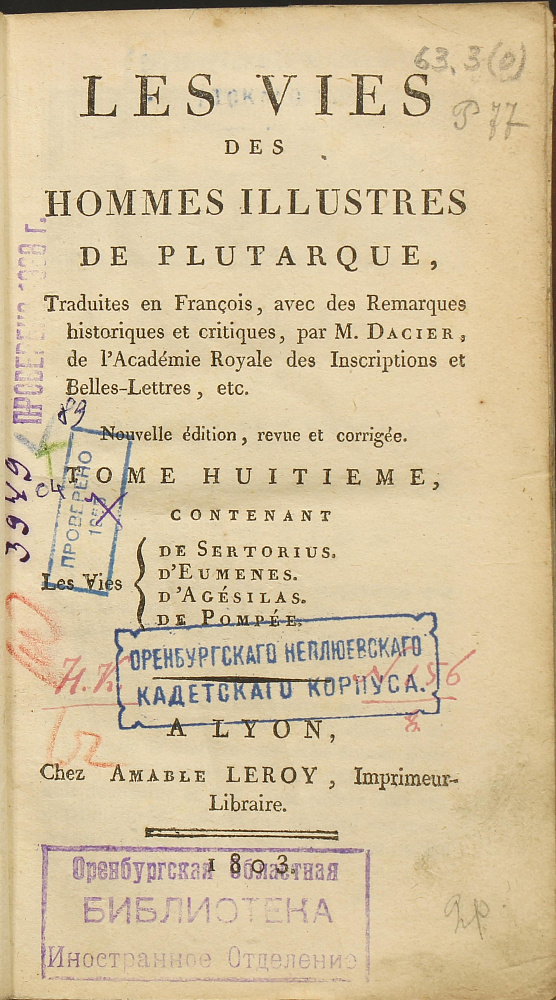 63.3(0)
P77
LES VIES
DES
HOMMES ILLUSTRES
DE PLUTARQUE,
Traduites en François, avec des Remarques
historiques et critiques, par M. DACIER,
de l'Académie Royale des Inscriptions et
Belles-Lettres, etc.
Nouvelle édition, revue et corrigée.
TOME HUITIEME,
CONTENANT
Les Vies
DE SERTORIUS.
D'EUMENES.
D'AGÉSILAS.
DE POMPÉE.
A LYON,
Chez AMABLE LEROY, Imprimeur-
Libraire.
1803.
ПРОВЕРЕНО
89
3949
04
ПРОВЕРЕНО
ОРЕНБУРГСКАГО НЕПЛЮЕВСКАГО
КАДЕТСКАГО КОРПУСА.
Н.К.
№ 156
Оренбургская Областная
БИБЛИОТЕКА
Иностранное Отделение